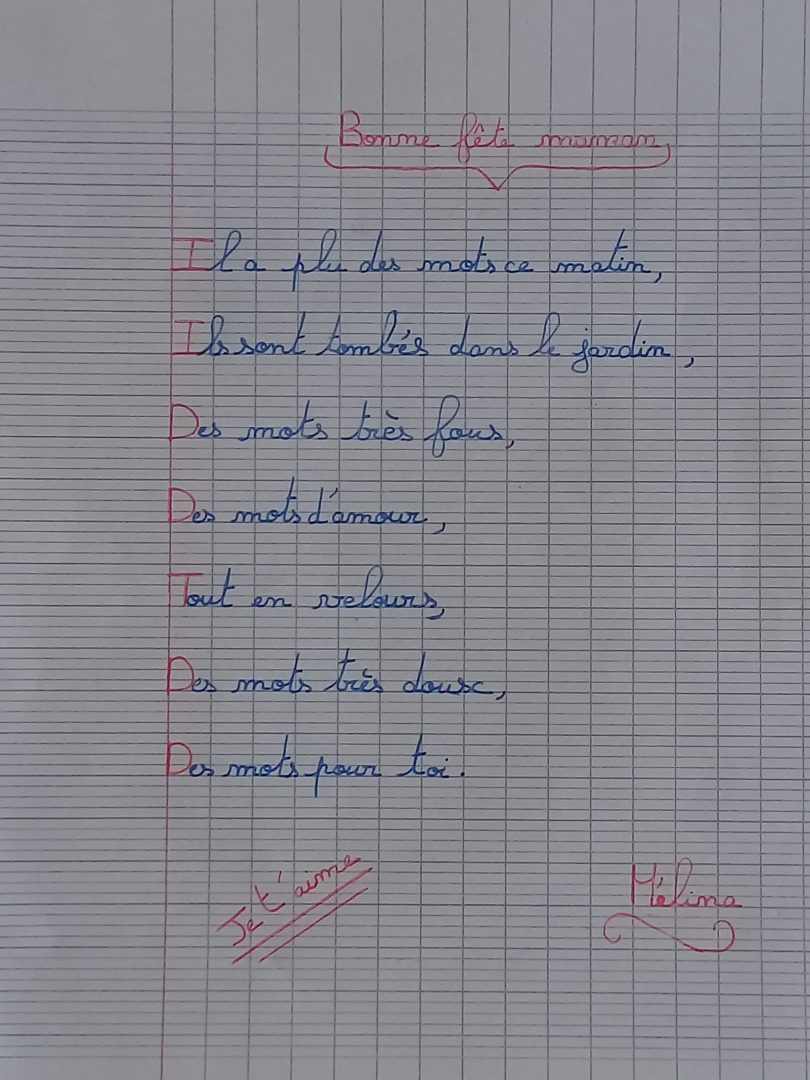 Bonne fête maman,
Il a plu des mots ce matin,
Ils sont tombés dans le jardin,
Des mots très fous,
Des mots d'amour,
Tout en velours,
Des mots très doux,
Des mots pour toi.
Je t'aime
Mélina